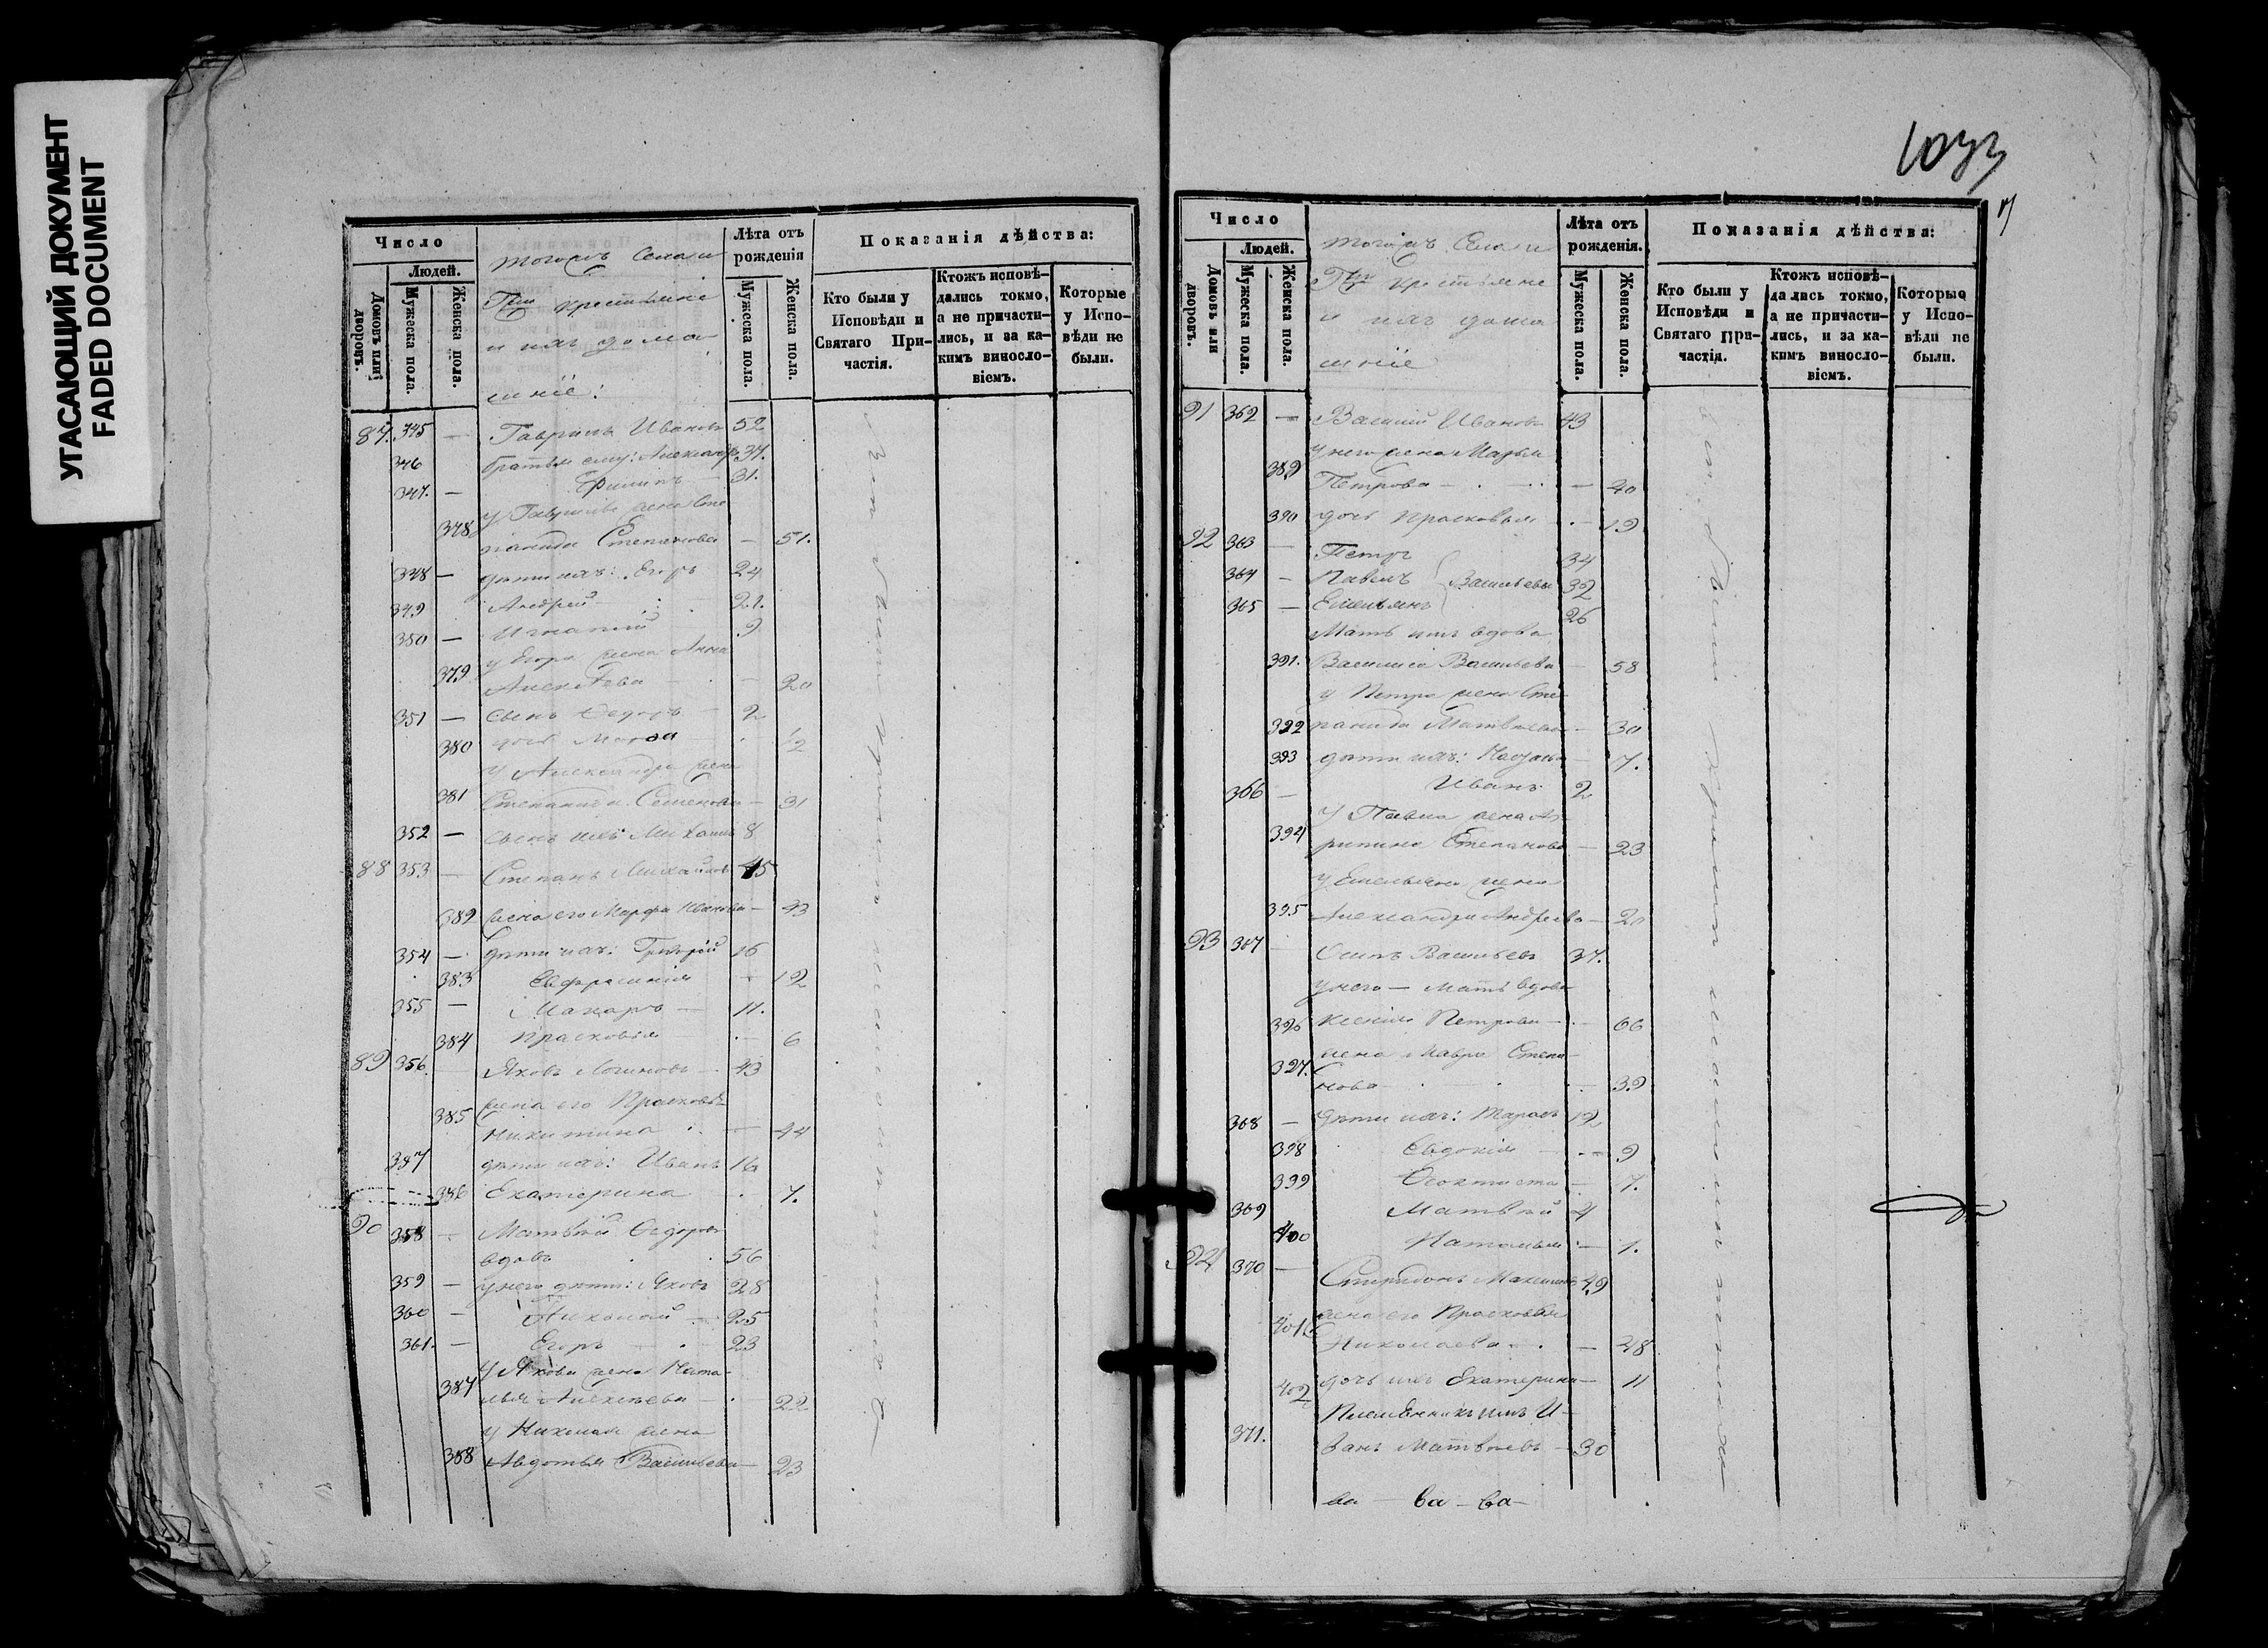 УГАСАЮЩИЙ ДОКУМЕНТ
FADED DOCUMENT
Число
Людей.
Домовъ или дворовъ.
Мужеска пола.
Женска пола.
тогожъ Села и
крестьяне
и ихъ дома-
шніе:
Лѣта отъ рожденія
Мужеска пола.
Женска пола.
Показанія дѣйства:
Кто были у Исповѣди и Святаго Причастія.
Ктожъ исповѣдались токмо, а не причастились, и за какимъ винословіемъ.
Которые у Исповѣди не были.
87. 345 — Гаврилъ Ивановъ 52
346 братья ему: Александръ 37.
347. — Филипъ — 31.
у Гаврилы жена Сте
378 панида Степанова — 51.
348 — дѣти ихъ: Егоръ 24
349 Андрей 21.
350 — Игнатий 9
у Егора жена Анна
379 Алексѣева — 20
351 — сынъ Ѳедоръ — 2
380 дочь Марѳа 1/2
у Александра жена
381 Степанида Семенова — 31
352 — сынъ ихъ Михаилъ 8
88 353 — Степанъ Михайловъ 45
382 жена его Марфа Иванова — 43
354 — дѣти ихъ: Григорій 16
383 Евфросинія — 12
355 — Макаръ — 11.
384 Прасковья — 6
89 356. — Яковъ Логиновъ — 43
жена его Прасковья
385 Никитина — 44
357 дѣти ихъ: Иванъ 16
386 Екатерина 7.
90 358 — Матвѣй Ѳедоровъ
вдовъ 56
359 — у него дѣти: Яковъ 28
360 — Николай — 25
361. — Егоръ — 23
у Якова жена Ната-
387 лья Алексѣева — 22
у Николая жена
388 Авдотья Васильева — 23
1033
Число
Людей.
Домовъ или дворовъ.
Мужеска пола.
Женска пола.
тогожъ Села и
крестьяне
и ихъ дома
шніе
Лѣта отъ рожденія.
Мужеска пола.
Женска пола.
Показанія дѣйства:
Кто были у Исповѣди и Святаго Причастія.
Ктожъ исповѣдались токмо, а не причастились, и за какимъ винословіемъ.
Которые у Исповѣди не были.
91 362 — Василий Ивановъ 43
у него жена Марья
389 Петрова — — 40
390 дочь Прасковья — 19
92 363 — Петръ 34
364 — Павелъ Васильевы 32
365 — Емельянъ 26
Мать ихъ вдова
391. Василиса Васильева — 58
у Петра жена Сте
392 панида Матвѣева — 30
393 дѣти ихъ: — 7.
366 — Иванъ 2
у Павла жена Аг-
394 рипина Степанова — 23
у Емельяна жена
395 Александра Андреева — 20
93 367 — Осипъ Васильевъ 37.
у него — мать вдова
396 Ксенія Петрова — 66
жена Мавра Степа-
397. нова 39
368 — дѣти ихъ: Тарасъ 12
398 Евдокія — 9
399 Ѳеоктиста — 7.
369 Матвѣй 4
400 Наталья — 1.
94 370 — Спиридонъ 49
401 жена его Прасковья
Николаева — 48
402 дочь ихъ Екатерина — 11
Племянникъ ихъ И-
371. ванъ Матвѣевъ — 30
ва — ва — ва —